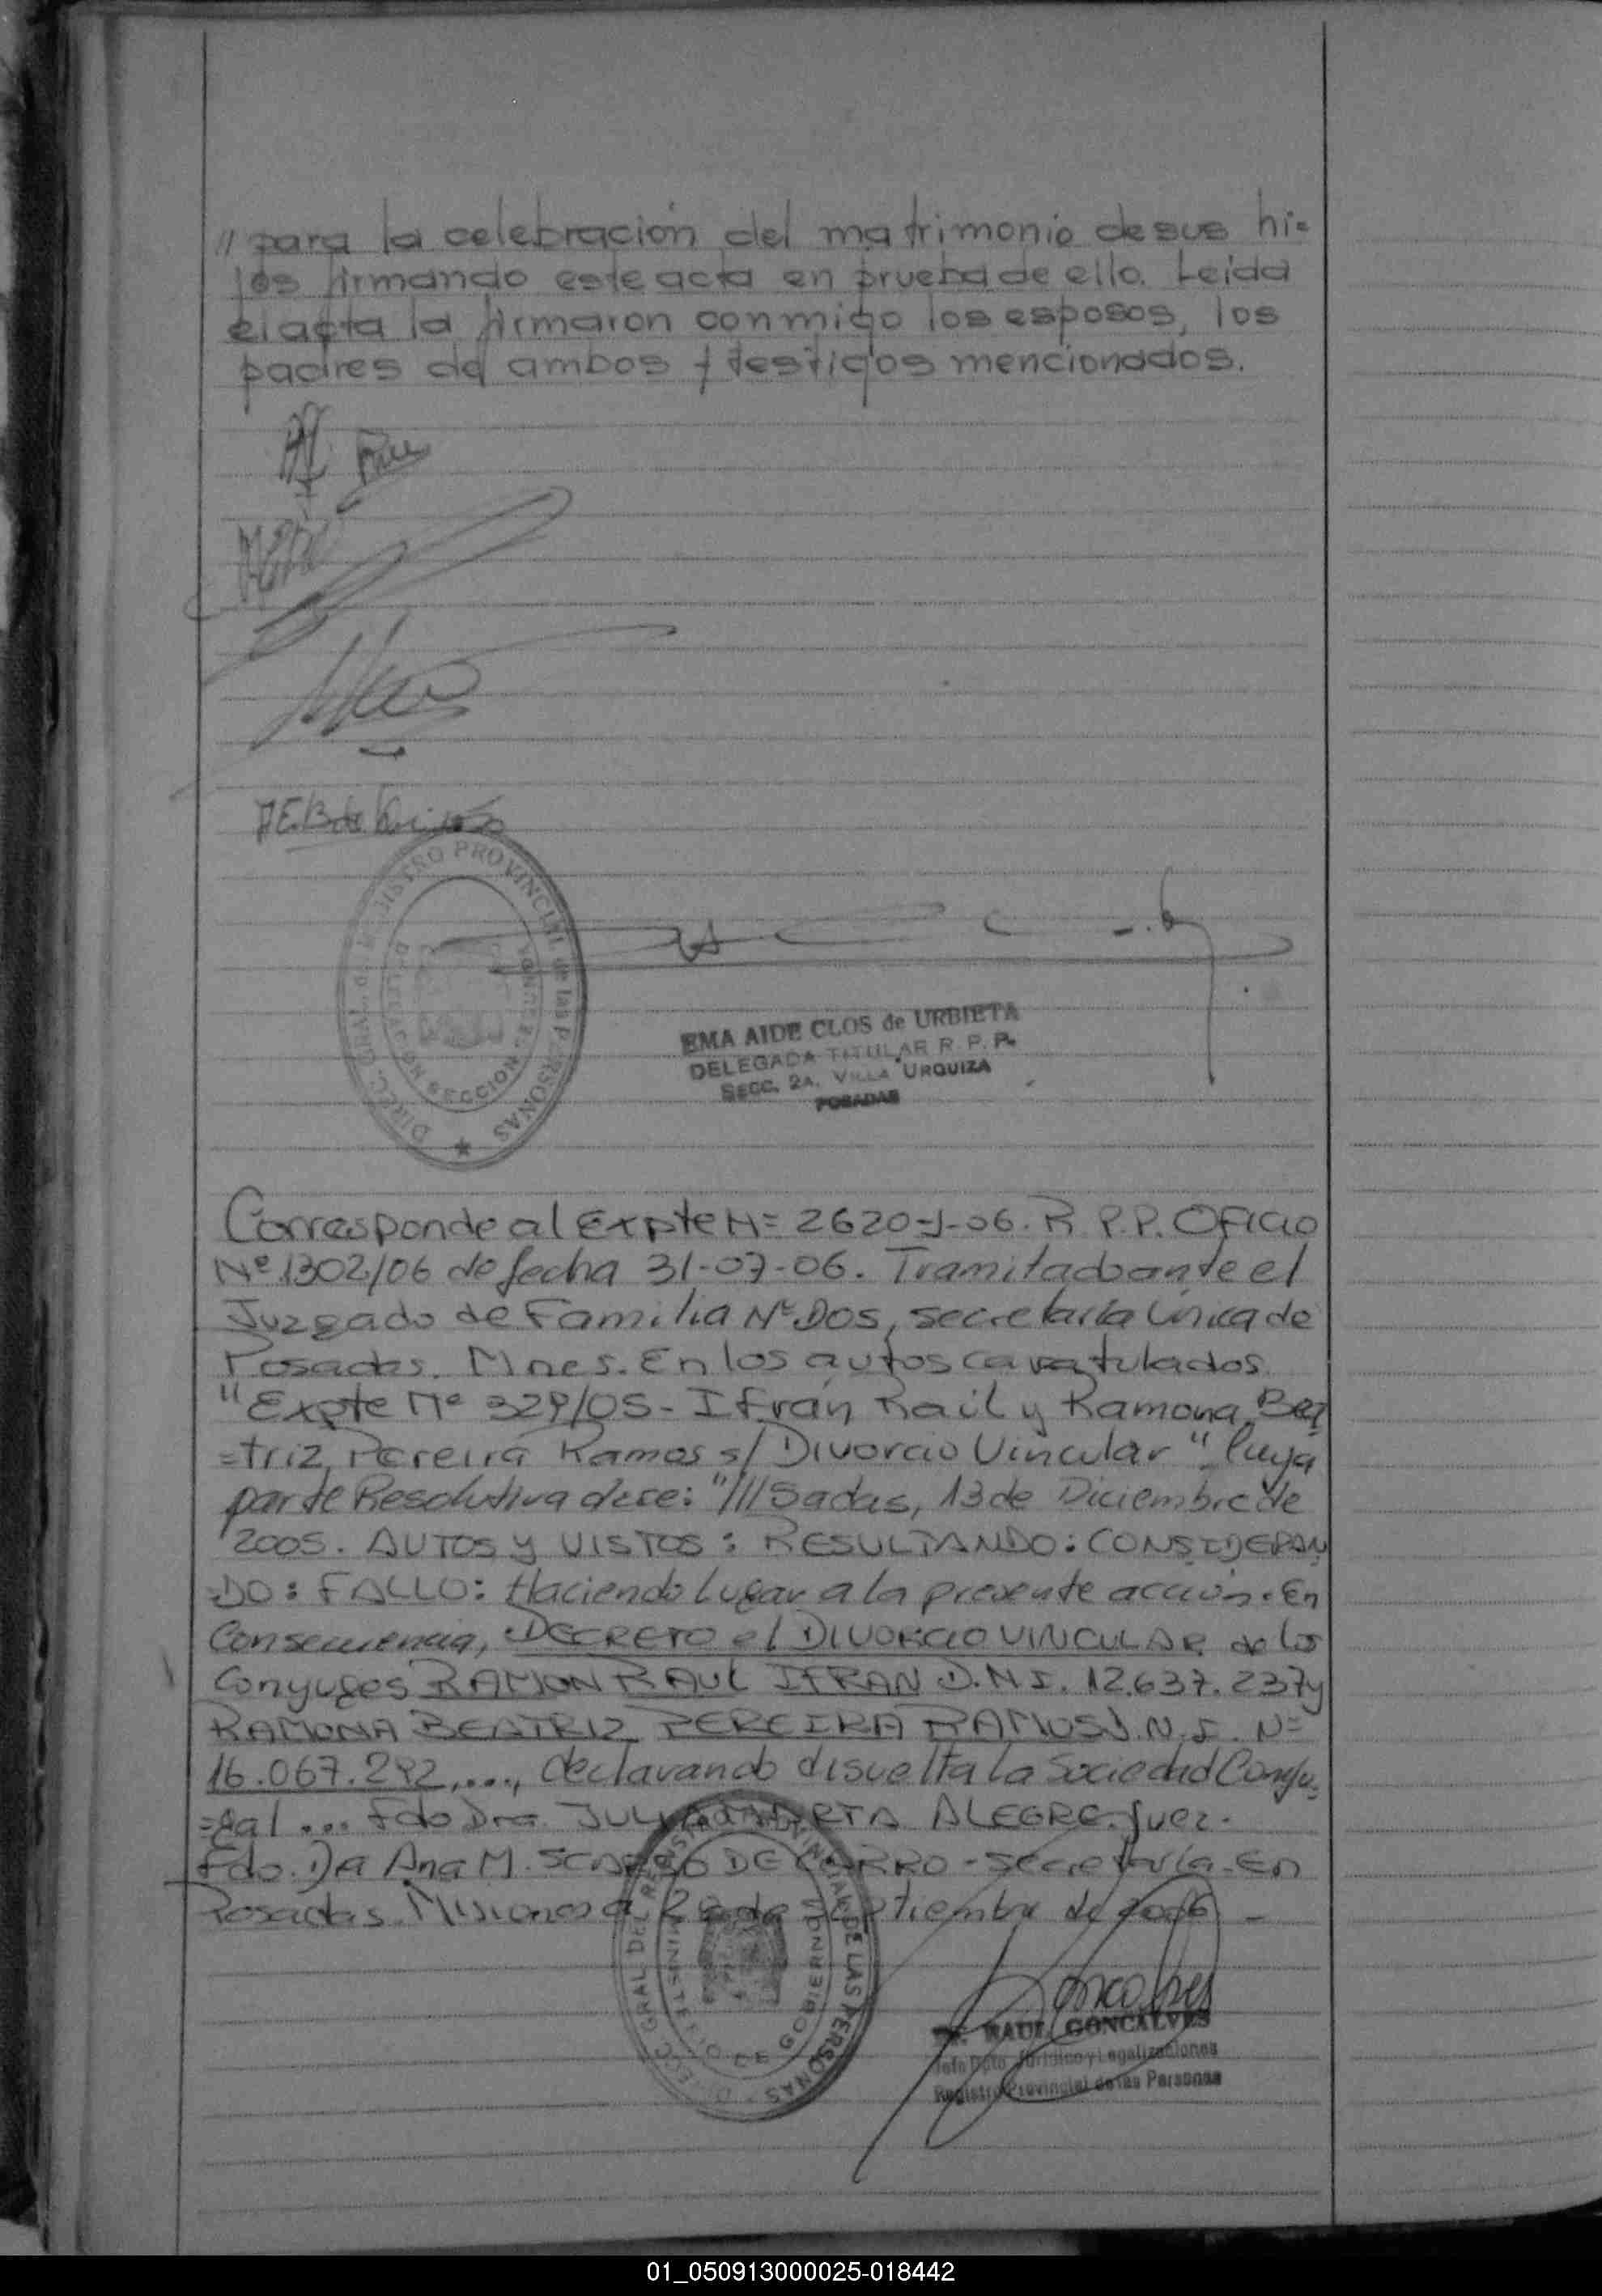 // para la celebración del matrimonio de sus hi=
jos firmando este acta en prueba de ello. Leída
el acta la firmaron conmigo los esposos, los
padres de ambos y testigos mencionados.
DIREC. GRAL. del REGISTRO PROVINCIAL de las PERSONAS
SECCION
EMA AIDE CLOS de URBIETA
DELEGADA TITULAR R. P. P.
SECC. 2A. VILLA URQUIZA
POSADAS
Corresponde al Expte N= 2620-J-06. R.P.P. Oficio
Nº 1302/06 de fecha 31-07-06. Tramitado ante el
Juzgado de Familia Nº Dos, secretaría Única de
Posadas. Mnes. En los autos caratulados
"Expte Nº 329/05 - Ifrán Raúl y Ramona Bea
=triz Pereira Ramos s/ Divorcio Vincular" Cuya
parte Resolutiva dice: "///sadas, 13 de Diciembre de
2005. AUTOS Y VISTOS: RESULTANDO: CONSIDERAN
=DO: FALLO: Haciendo Lugar a la presente acción. En
Consecuencia, DECRETO el DIVORCIO VINCULAR de los
Conyuges RAMON RAUL IFRAN D.N.I. 12.637.237 y
RAMONA BEATRIZ PEREIRA RAMOS D.N.I. N=
16.067.292,..., declarando disuelta la Sociedad Conyu=
=gal ... Fdo Dra. JULIA MARTA ALEGRE. Juez.
Fdo. Dra Ana M. DE CARRO - Secretaría. En
Posadas. Misiones a de Septiembre de 2006 -
DIRECC GRAL DEL REGISTRO PROVINCIAL DE LAS PERSONAS
MINISTERIO DE GOBIERNO
Goncalves
Dr. RAUL GONCALVES
Jefe Dpto. Jurídico y Legalizaciones
Registro Provincial de las Personas
01_050913000025-018442